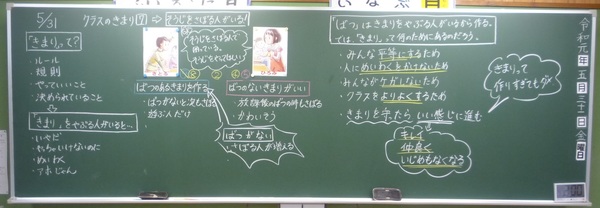 5/31
クラスのきまり⑦ ⇒ そうじをさぼる人がいる!
「きまり」って?
・ルール
・規則
・やっていいこと
・決められていること
「きまり」をやぶる人がいると…
・いやだ
・やっちゃいけないのに
・めいわく
・アホじゃん
そうじをさぼる人がいて
困っている。
ばつのあるきまりを作る
・ばつがないと次もさぼる
・遊ぶ人だけ
ばつのないきまりがいい
・放課後のばつの時もさぼる
・かわいそう
ばつがない
・さぼる人が増える
「ばつ」はきまりをやぶる人がいるから作る。
では「きまり」って何のためにあるのだろう。
・みんな平等にするため
・人にめいわくをかけないため
・みんながケガしないため
・クラスをよりよくするため
・きまりを守たらいい感じに進む
キレイ
仲良く
いじめもなくなる
きまりって
作りすぎてもダメ
令和元年五月三十一日金曜日